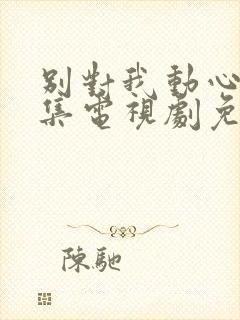 別對我動心
集電視劇免
陳馳